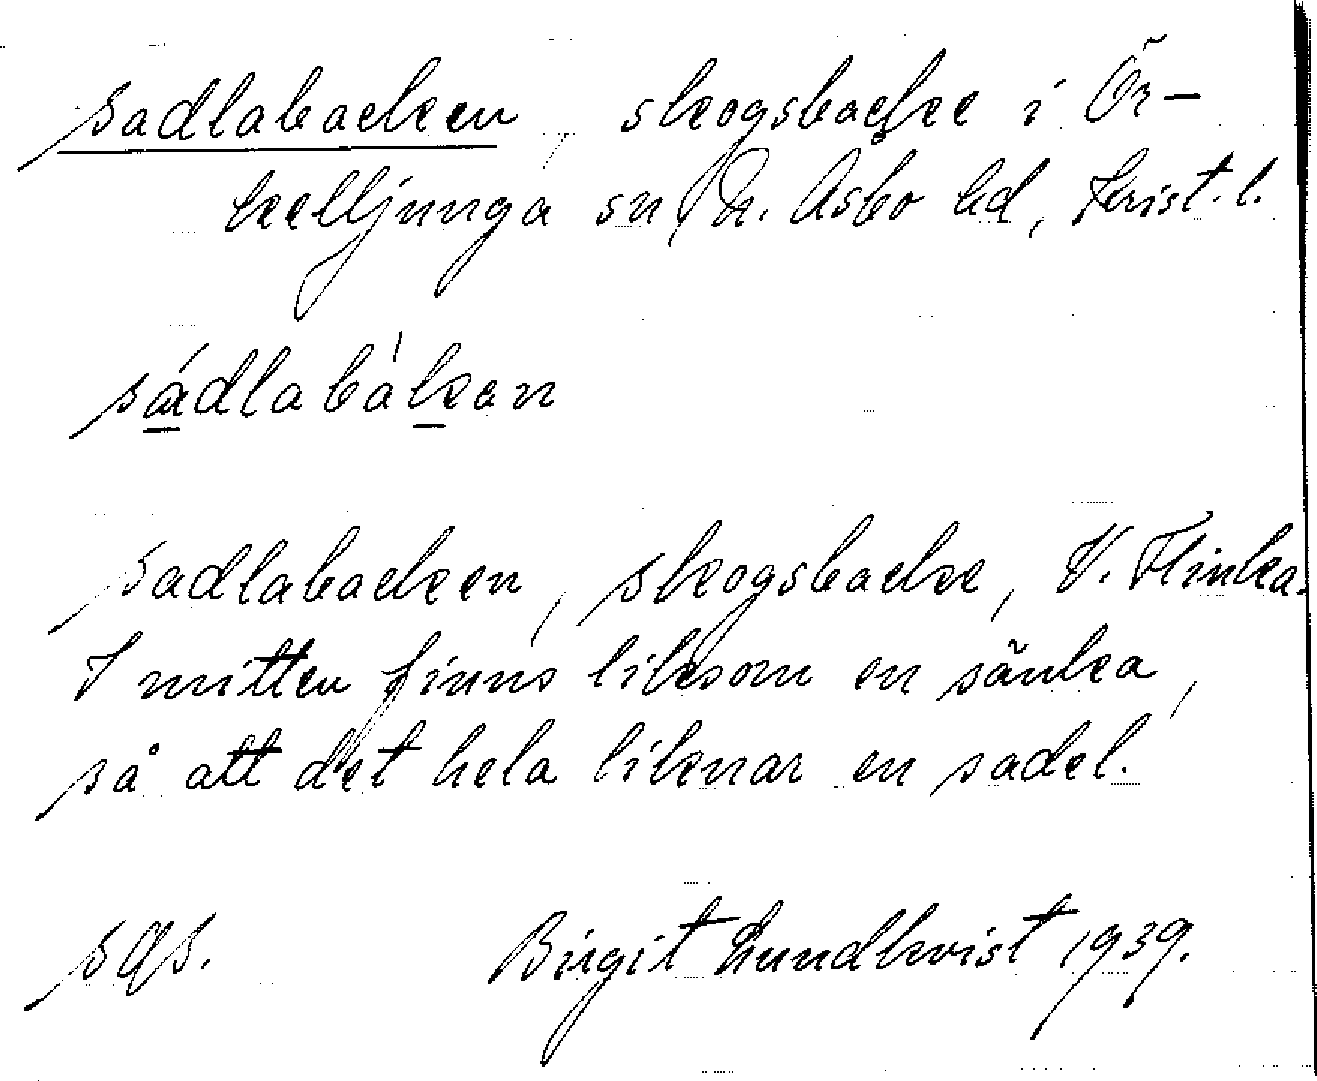 Sadlabacken, skogsbacke i Ör-
kelljunga sn, N. Åsbo hd, Krist. l.
sádlabàkan
Sadlabacken, skogsbacke, V. Flinka.
I mitten finns liksom en sänka,
så att det hela liknar en sadel.
Birgit Lundkvist 1939.